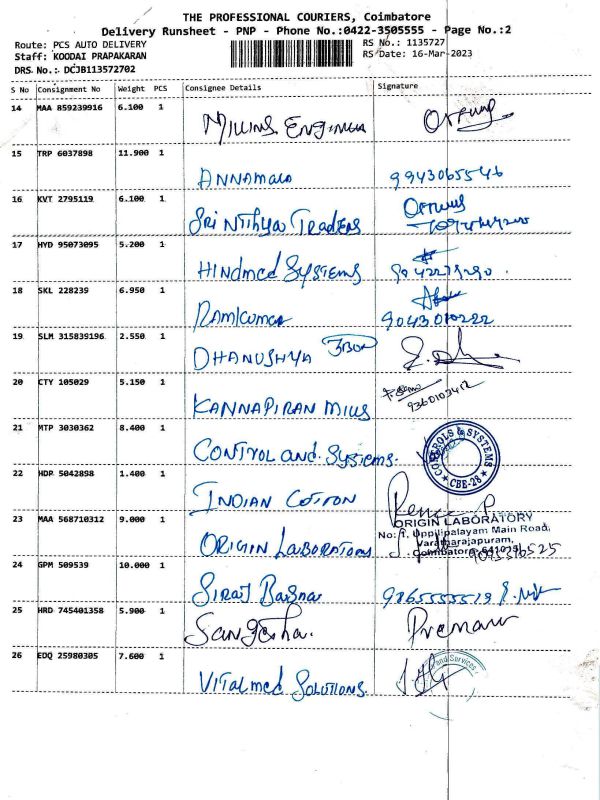 THE PROFESSIONAL COURIERS, Coimbatore
Delivery Runsheet - PNP - Phone No.:0422-3505555 - Page No.:2
Route: PCS AUTO DELIVERY RS No.: 1135727
Staff: KOODAI PRAPAKARAN RS Date: 16-Mar-2023
DRS No.: DCJB113572702
S No Consignment No Weight PCS Consignee Details Signature
14 MAA 859239916 6.100 1
15 TRP 6037898 11.900 1 ANNAMALA 9943065546
16 KVT 2795119 6.100 1 Sri Nithya Traders
17 HYD 95073095 5.200 1 Hindmed Systems
18 SKL 228239 6.950 1 Ramkumar 9043010222
19 SLM 315839196 2.550 1 DHANUSHYA
20 CTY 105029 5.150 1 KANNAPIRAN Mills 9360103412
21 MTP 3030362 8.400 1 Control and Systems. CONTROLS & SYSTEMS ★ CBE-28 ★
22 HDP 5042898 1.400 1 INDIAN COTTON
23 MAA 568710312 9.000 1 ORIGIN LABORATORY
ORIGIN LABORATORY
No: 1, Uppilipalayam Main Road,
Varatharajapuram,
Coimbatore-641015
24 GPM 509539 10.000 1
25 HRD 745401358 5.900 1
26 EDQ 25980305 7.600 1 Vitalmed Solutions. and Services